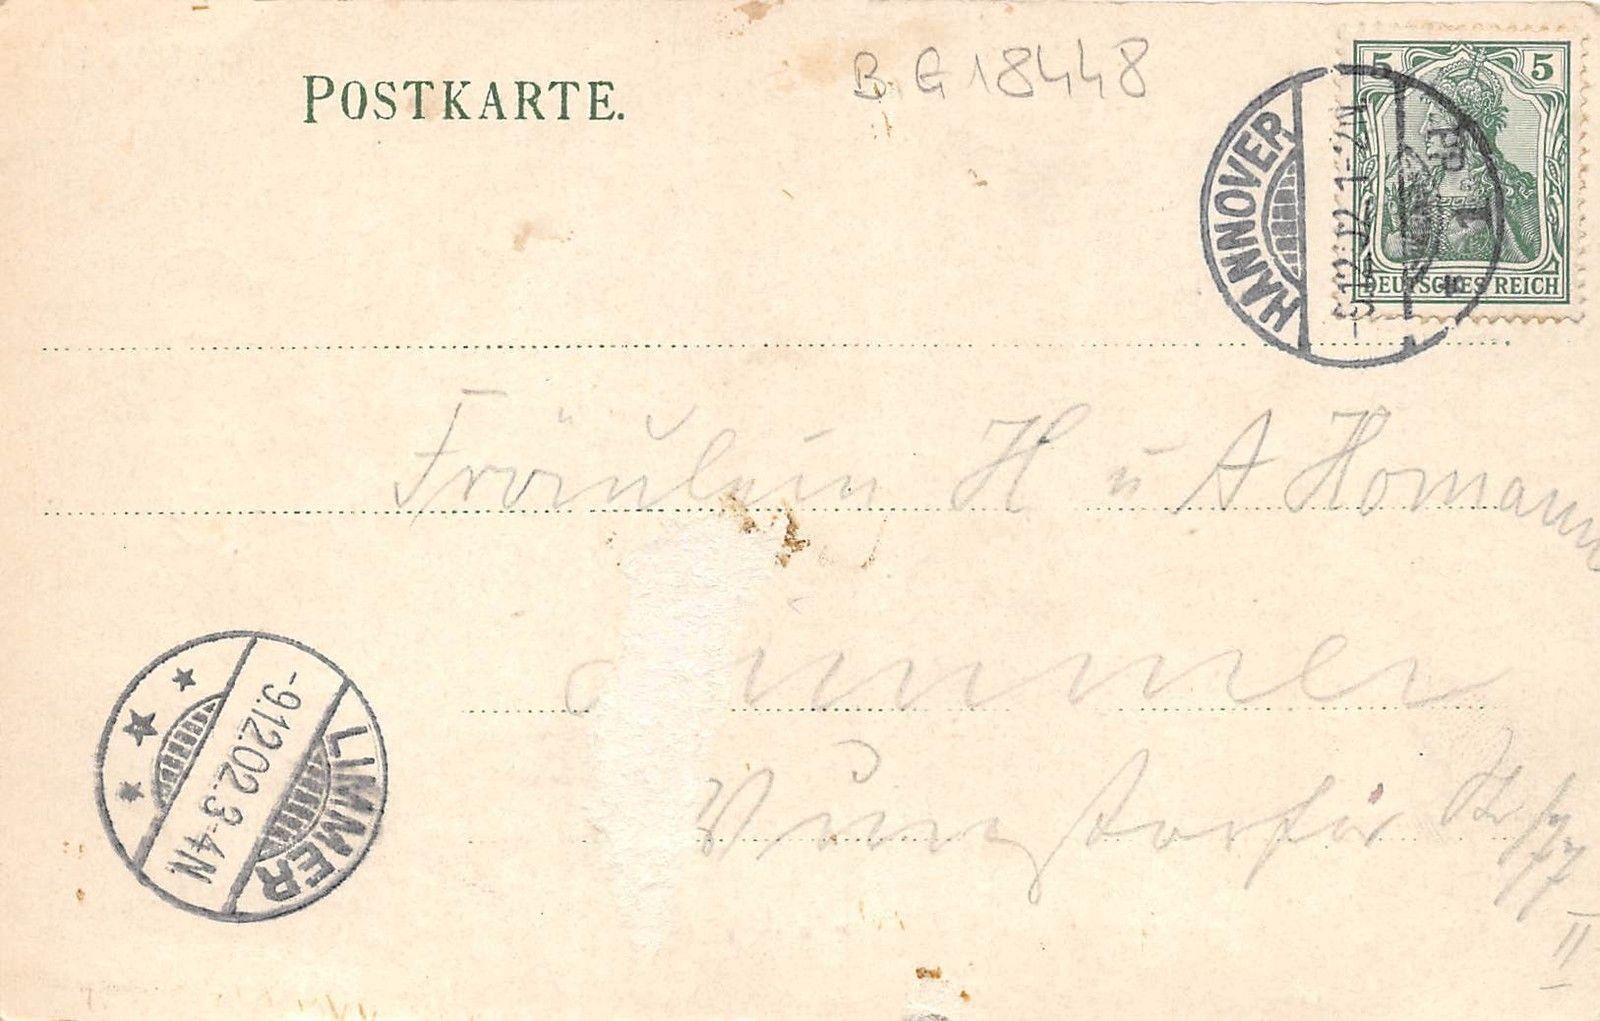 POSTKARTE.
B.G 18448
5 5
DEUTSCHES REICH
HANNOVER
-9.12.02.1-2N
Fräulein H u A Homann
Limmer
Wunstorfer Str 77
II
LIMMER
-9.12.02.3-4N